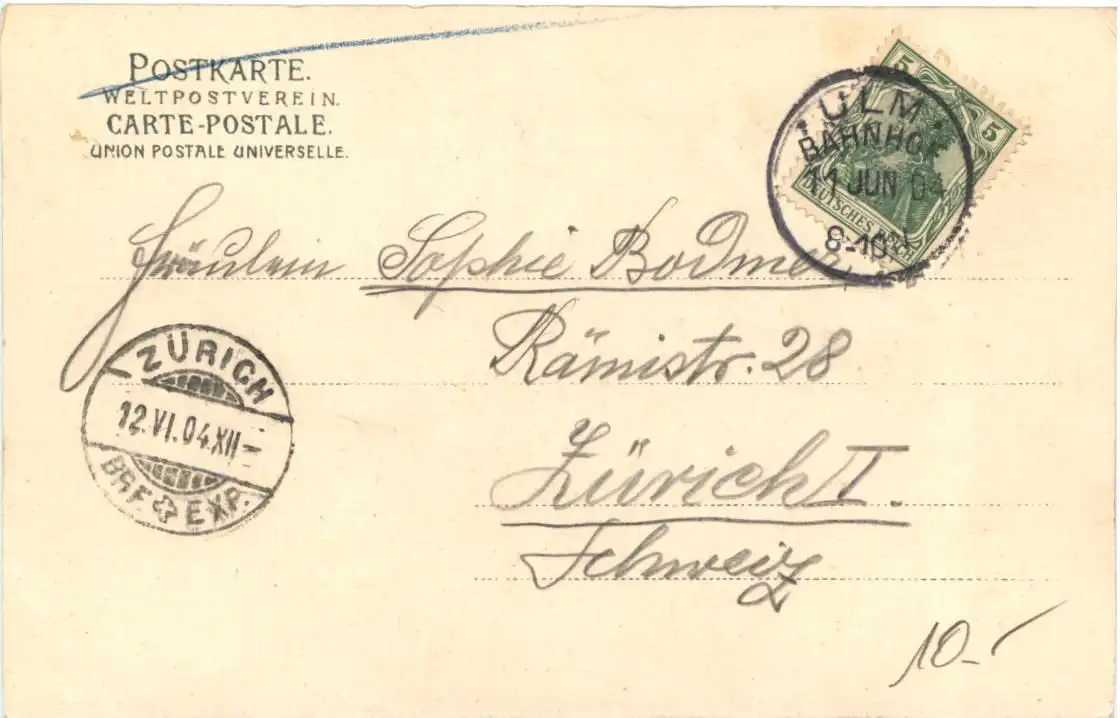 POSTKARTE.
WELTPOSTVEREIN.
CARTE-POSTALE.
UNION POSTALE UNIVERSELLE.
5
5
DEUTSCHES REICH
ULM
BAHNHOF
11 JUN 04
8-10
Fräulein Sophie Bodmer
Rämistr. 28
Zürich I.
Schweiz
ZÜRICH
12.VI.04.XII-
BRF. EXP.
10.-